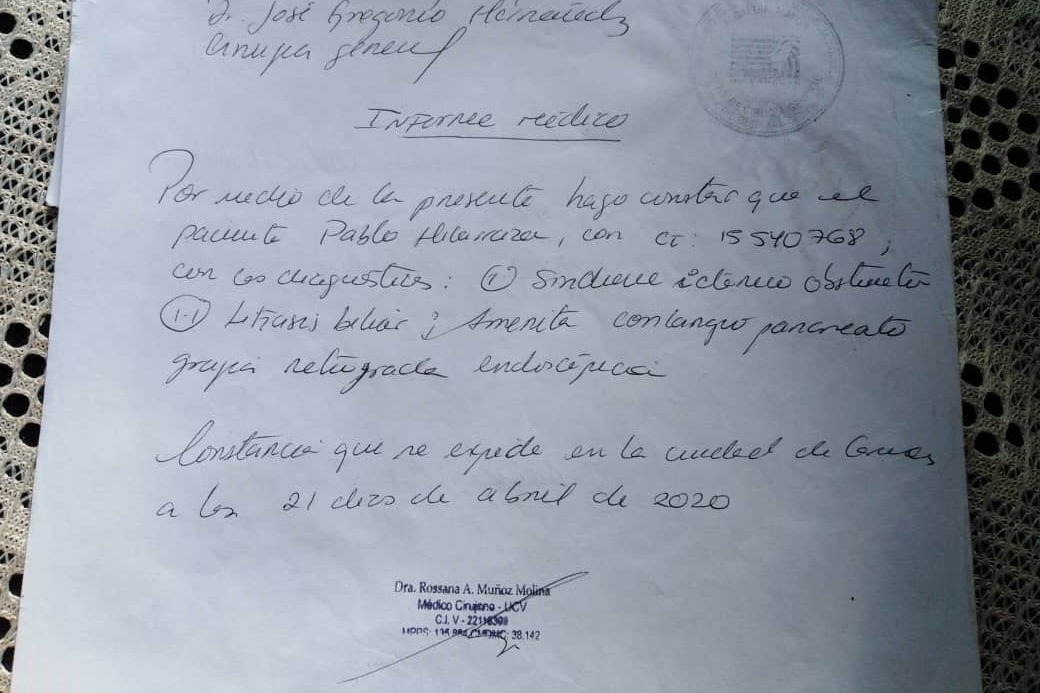 Dr. José Gregorio Hernández
Cirugía general
Informe médico
Por medio de la presente hago constar que el
paciente Pablo, con CI: 15540768,
con los diagnosticos: ① Sindrome icterico obstructivo
1.1 Litiasis biliar; Amerita colangio pancreato
grafia retrograda endoscópica
Constancia que se expide en la ciudad de Caracas
a los 21 dias de abril de 2020
Dra. Rossana A. Muñoz Molina
Médico Cirujano - UCV
C.I. V - 22118399
MPPS: 38.142